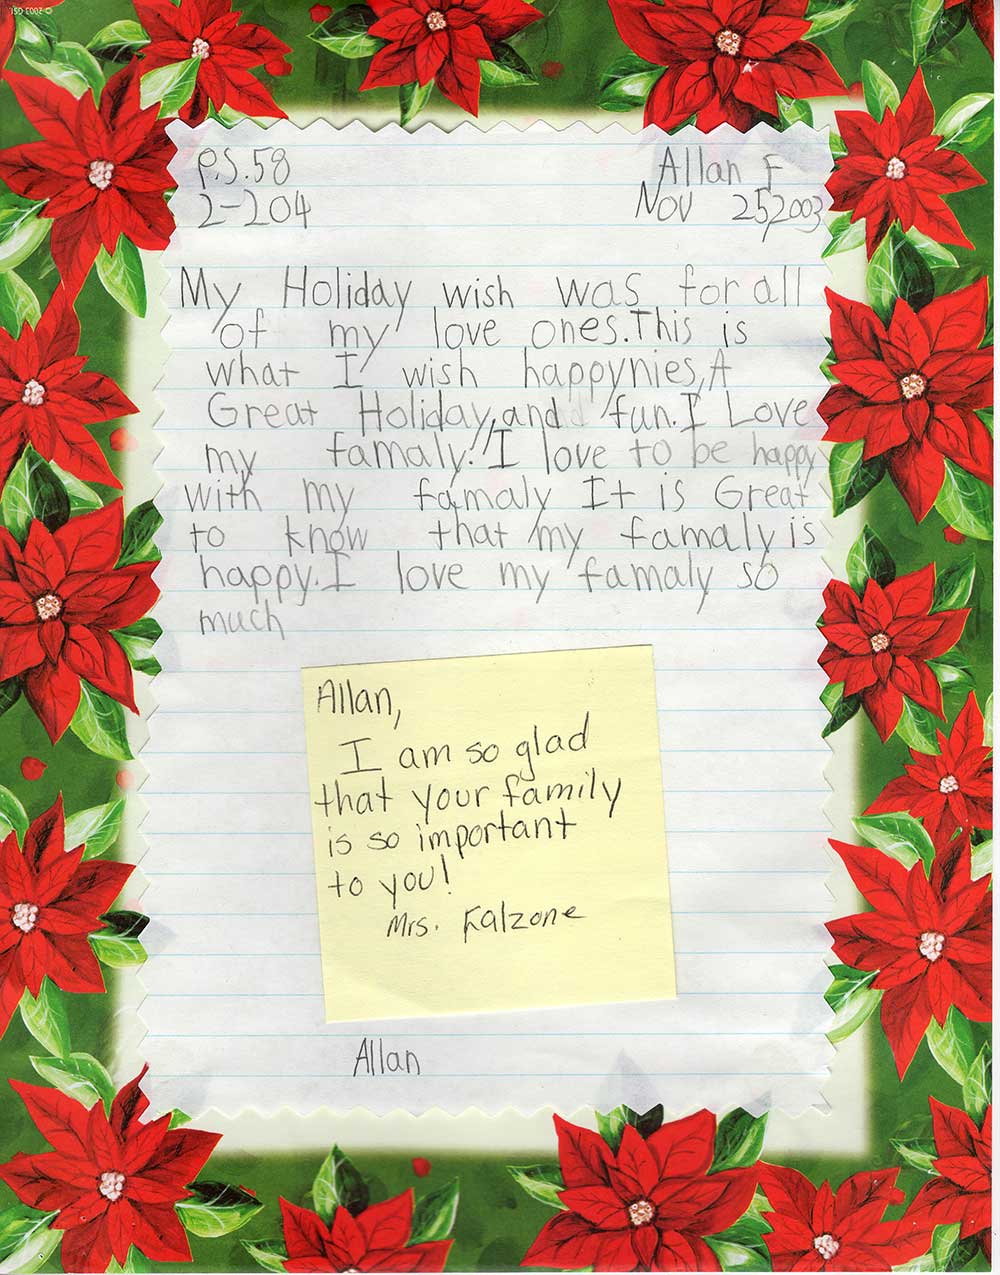 © 2003 GSI
P.S.58
Allan F
2-204
Nov 25,2003
My Holiday wish was for all
of my love ones.This is
what I wish happynies,A
Great Holiday,and fun.I Love
my famaly!!I love to be happy
with my famaly It is Great
to know that my famaly is
happy.I love my famaly so
much
Allan,
I am so glad
that your family
is so important
to you!
Mrs. Kalzone
Allan